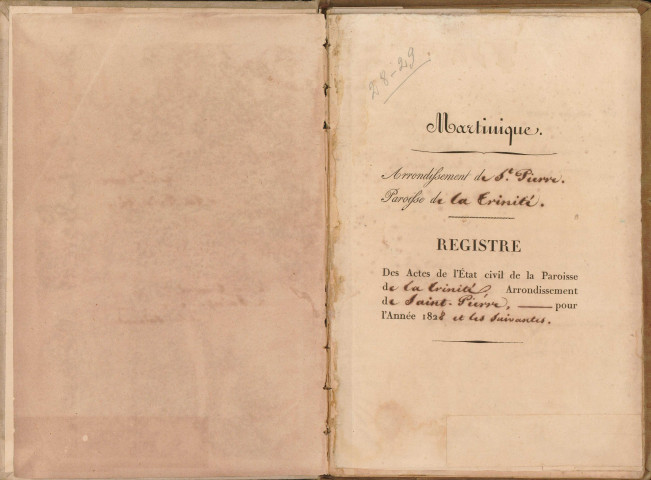 28-29
Martinique.
Arrondissement de St. Pierre.
Paroisse de la Trinité.
REGISTRE
Des Actes de l'État civil de la Paroisse
de la Trinité, Arrondissement
de Saint-Pierre, pour
l'Année 1828 et les suivantes.